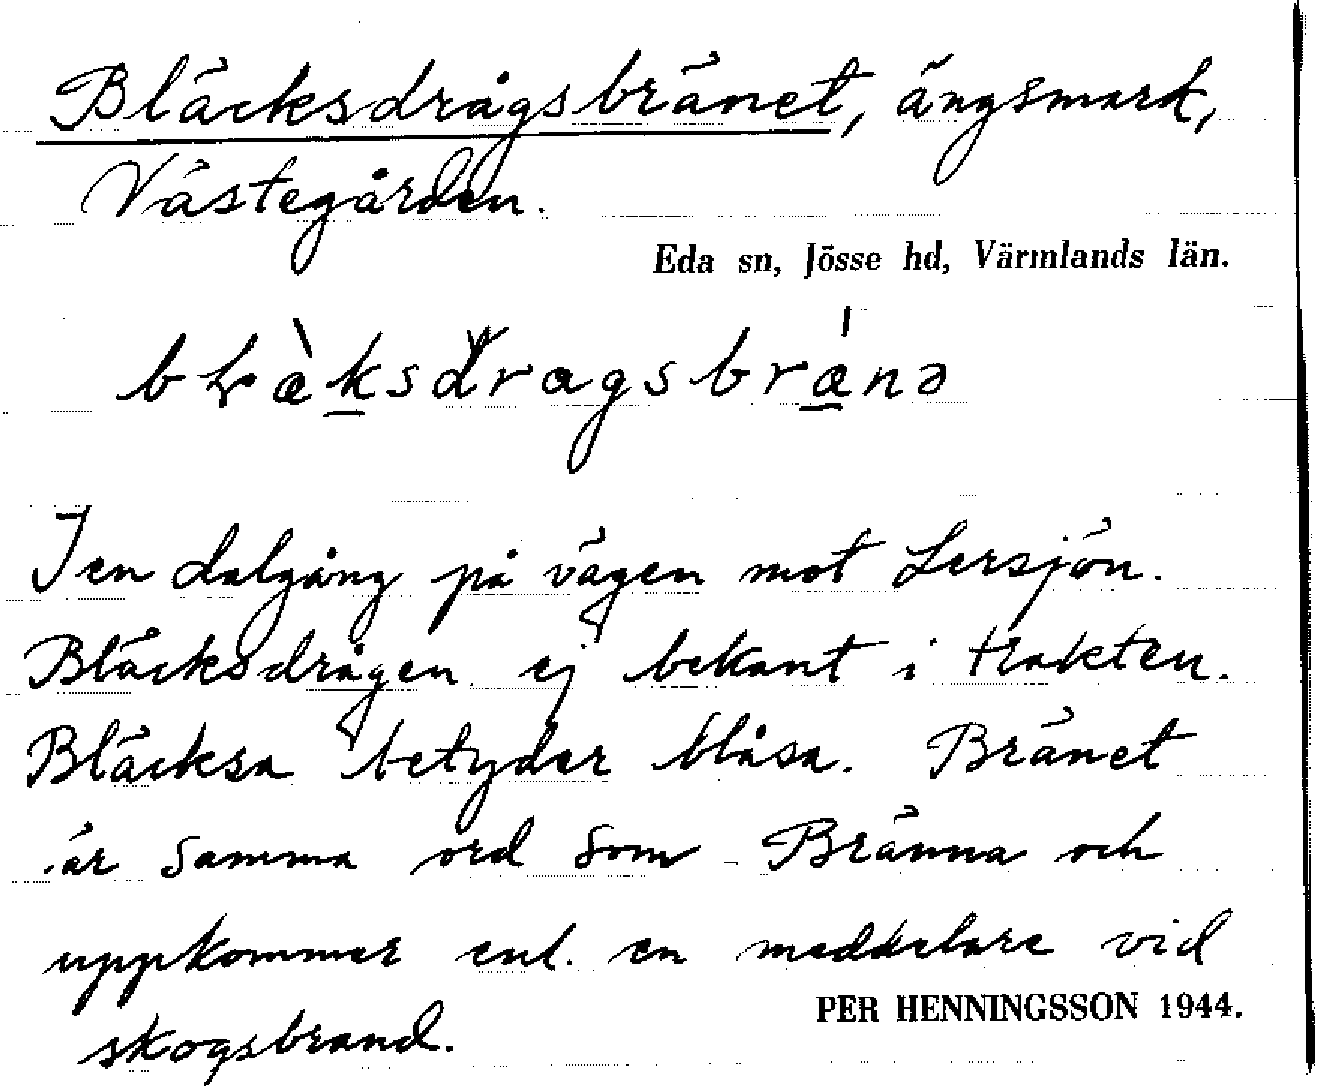 Bläcksdrågsbränet, ängsmark,
Västegården.
Eda sn, Jösse hd, Värmlands län.
I en dalgång på vägen mot Lersjön.
Bläcksdrågen ej bekant i trakten.
Bläcksa betyder blåsa. Bränet
är samma ord som Bränna och
uppkommer enl. en meddelare vid
skogsbrand.
PER HENNINGSSON 1944.